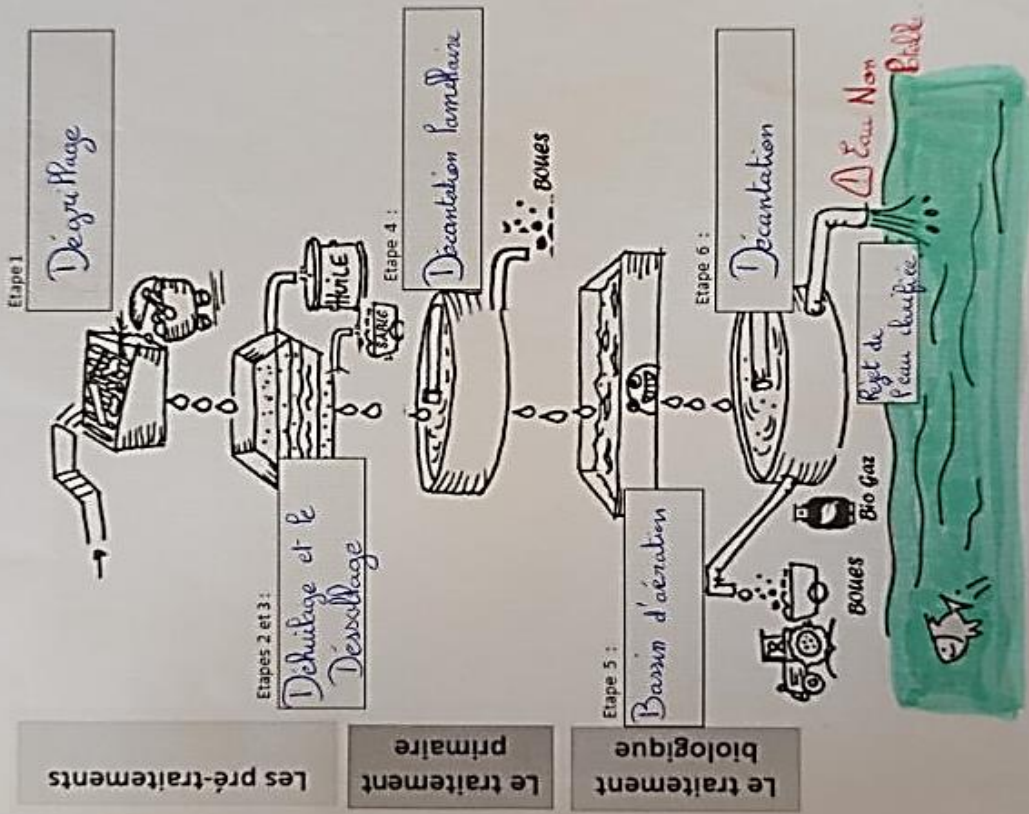 Les pré-traitements
Etape1
Dégrillage
Etapes 2 et 3 :
Déhuilage et le
Déssallage
HUILE
SABLE
Le traitement
primaire
Etape 4 :
Décantation lamellaire
BOUES
Le traitement
biologique
Etape 5 :
Bassin d'aération
Etape 6 :
Décantation
BOUES
Bio Gaz
Rejet de
l'eau clarifiée
! Eau Non
Potable